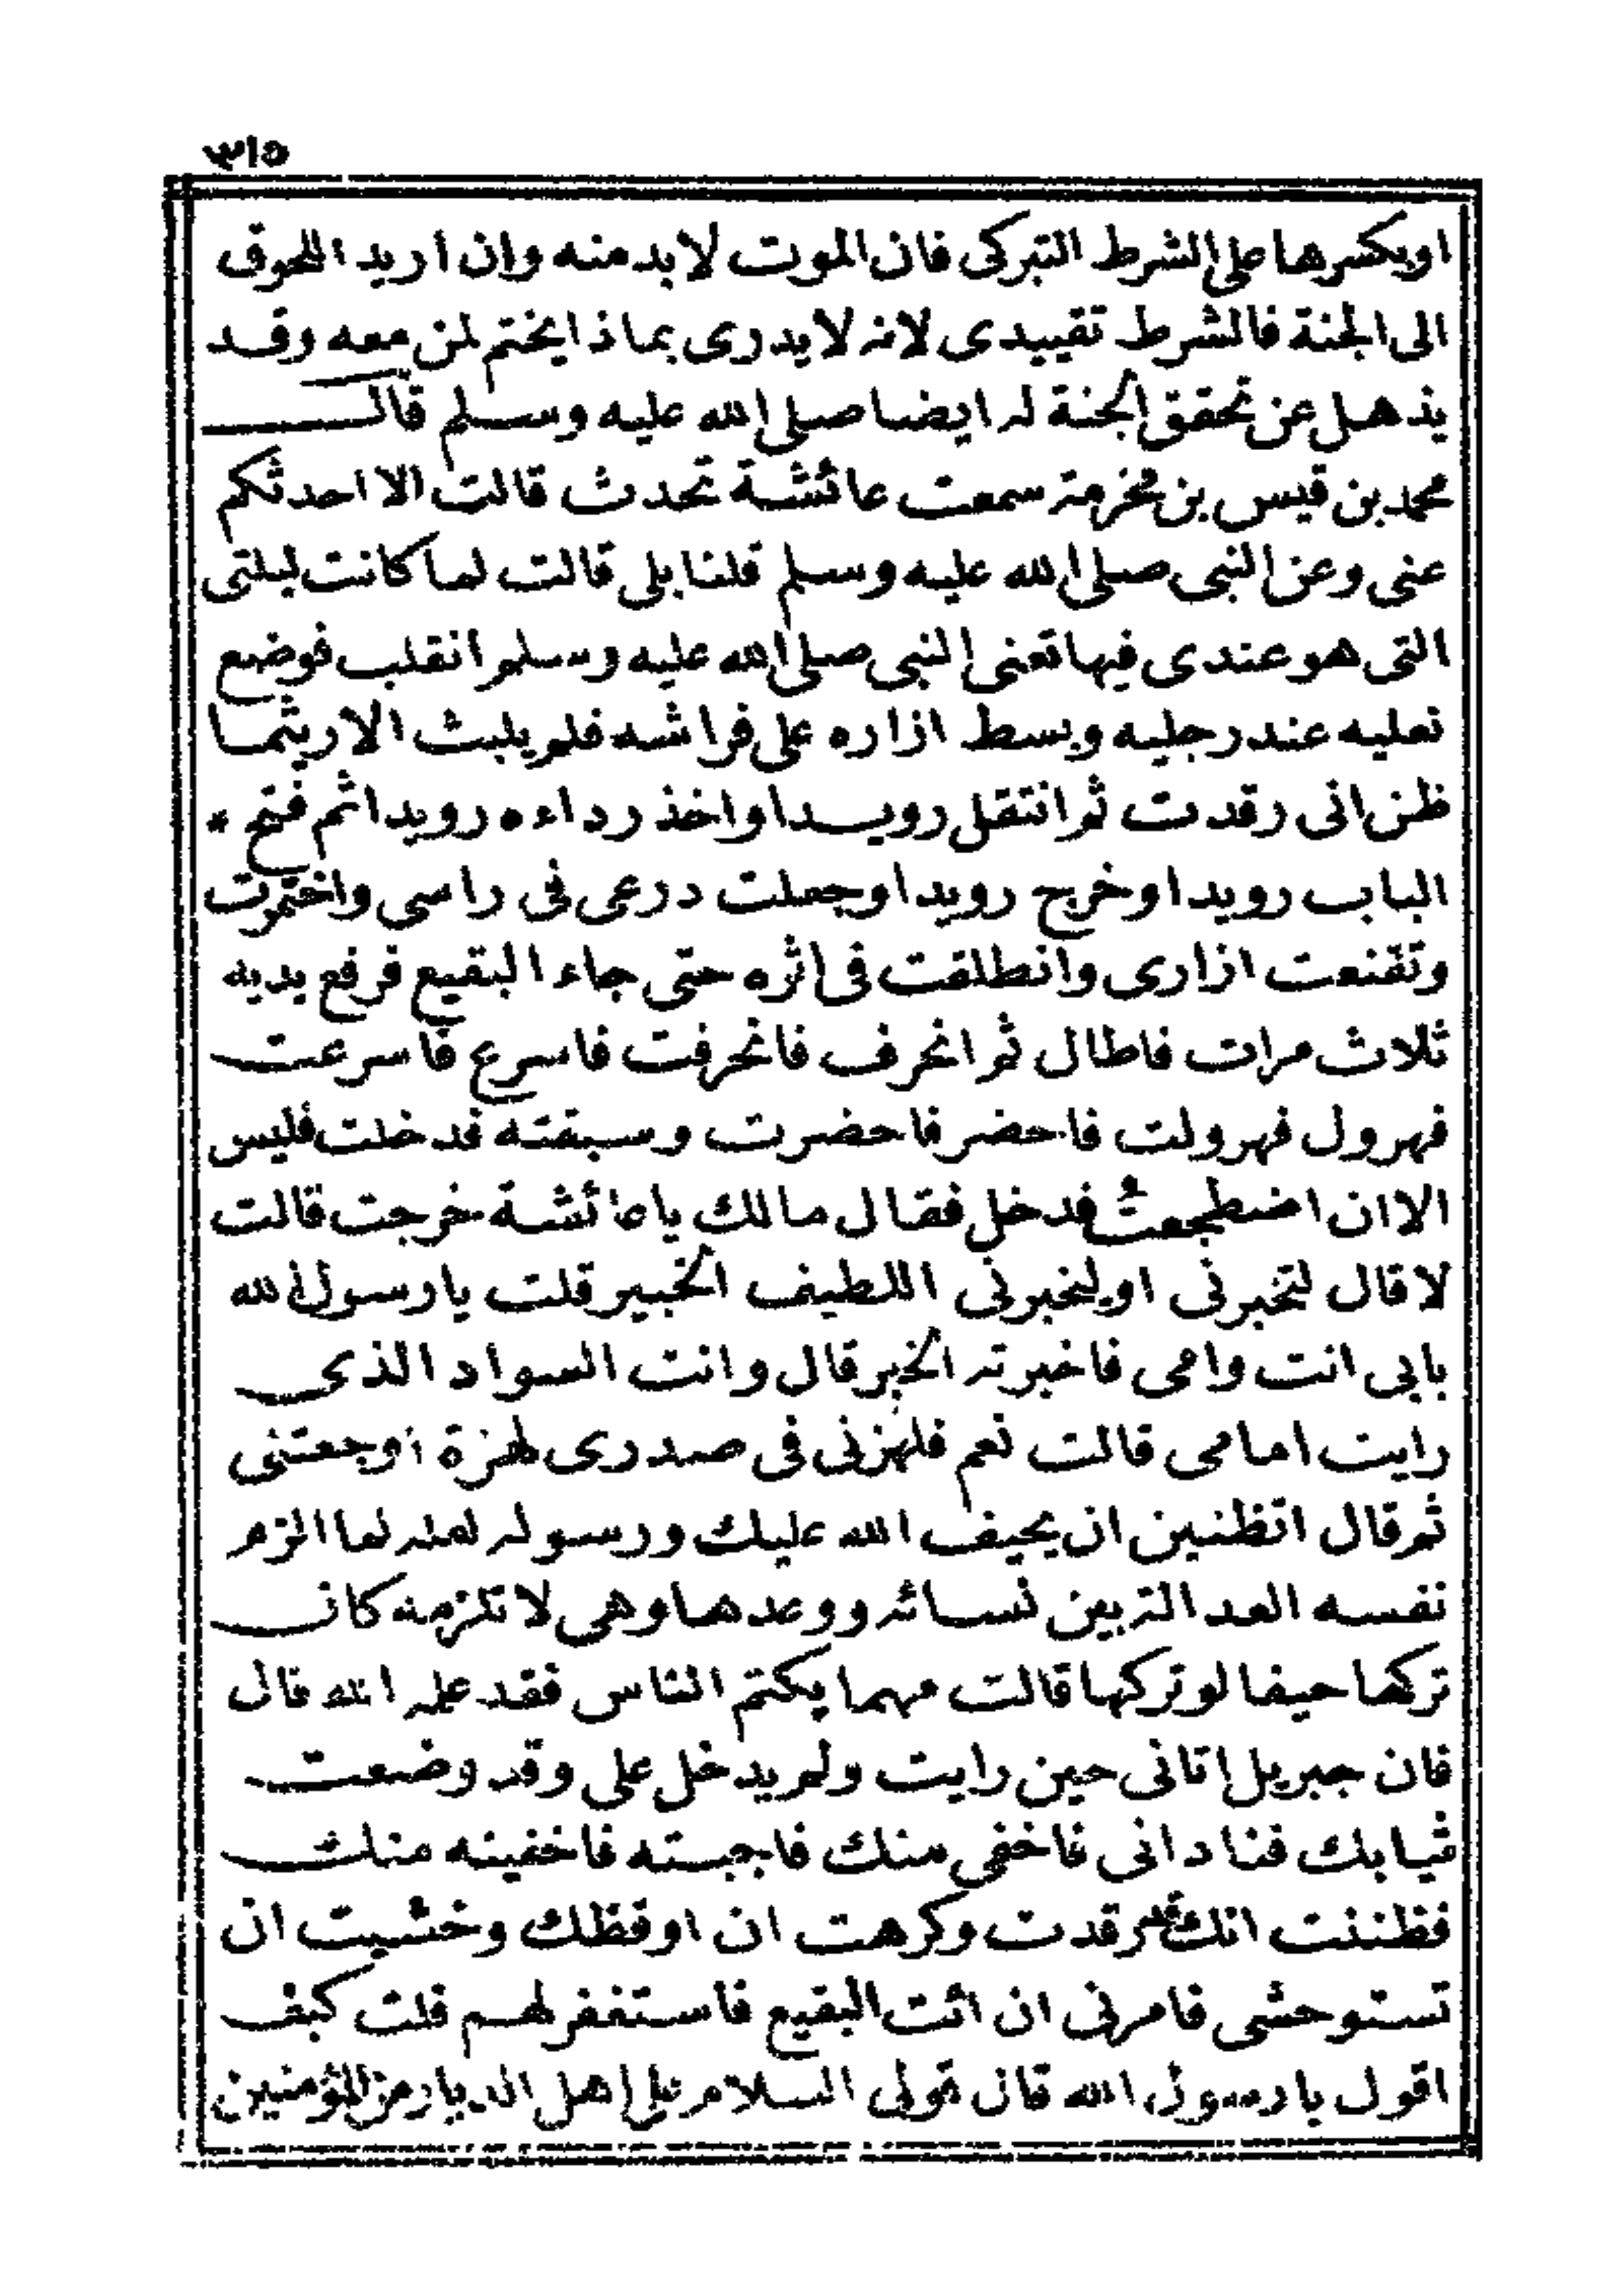 ٣١٥
او يكسرها على الشرط التبركى فان الموت لابد منه وان اريد اللحوق
الى الجنة فالشرط تقييدى لانه لايدرى بماذا يختم لمن معه وقد
يذهل عن تحقق الجنة له ايضا صلى الله عليه وسلم قال
محمد بن قيس بن مخرمة سمعت عائشة تحدث قالت الا احدثكم
عنى وعن النبى صلى الله عليه وسلم قلنا بلى قالت لما كانت ليلتى
التى هو عندى فيها تعنى النبى صلى الله عليه وسلم انقلب فوضع
نعليه عند رجليه وبسط ازاره على فراشه فلم يلبث الا ريثما
ظن انى رقدت ثم انتقل رويدا واخذ رداءه رويدا ثم فتح *
الباب رويدا وخرج رويدا وجعلت درعى فى راسى واختمرت
وتقنعت ازارى وانطلقت فى اثره حتى جاء البقيع فرفع يديه
ثلاث مرات فاطال ثم انحرف فانحرفت فاسرع فاسرعت
فهرول فهرولت فاحضر فاحضرت وسبقته فدخلت فليس
الا ان اضطجعت فدخل فقال مالك ياعائشة خرجت قالت
لا قال لتخبرنى او ليخبرنى اللطيف الخبير قلت يارسول الله
بابى انت وامى فاخبرته الخبر قال وانت السواد الذى
رايت امامى قالت نعم فلهزنى فى صدرى لهزة اوجعتنى
ثم قال اتظنين ان يحيف الله عليك ورسوله لعله لما الزم
نفسه العدالة بين نسائه ووعدها وهى لا تلزمه كان
تركها حيفا لو تركها قالت مهما يكتم الناس فقد علمه الله قال
فان جبريل اتانى حين رايت ولم يدخل على وقد وضعت
ثيابك فنادانى فاخفى منك فاجبته فاخفيته منك
فظننت انك قد رقدت وكرهت ان اوقظك وخشيت ان
تستوحشى فامرنى ان ائت البقيع فاستغفر لهم قلت كيف
اقول يارسول الله قال قولى السلام على اهل الديار من المؤمنين